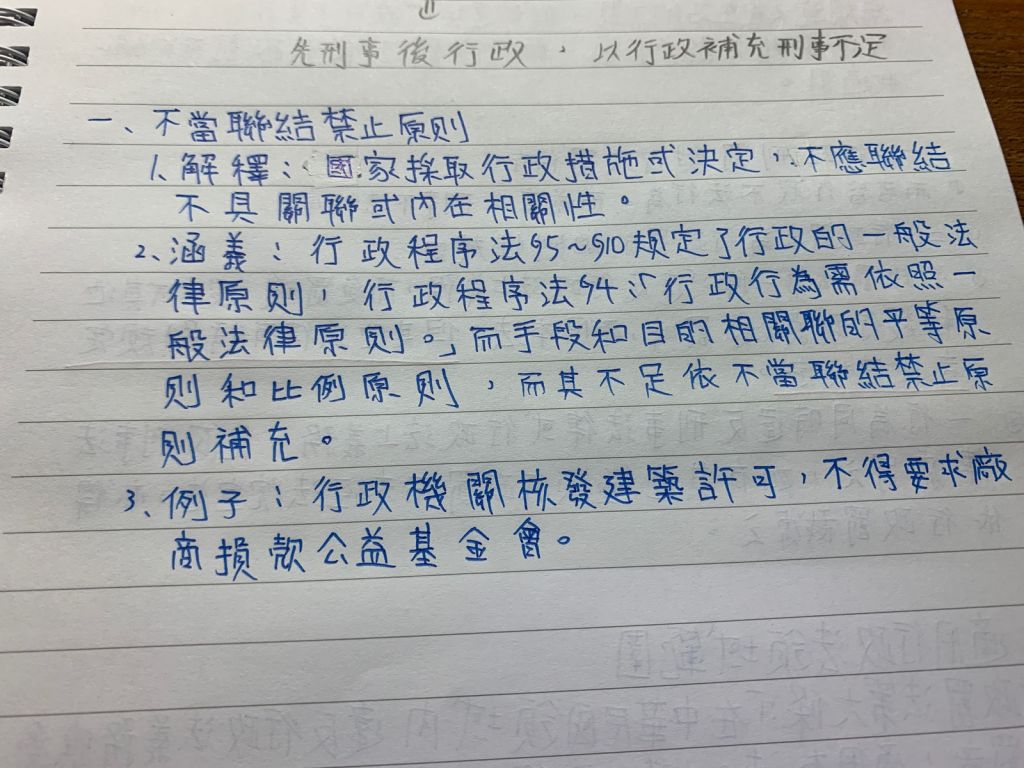 先刑事後行政，以行政補充刑事不足
一、不當聯結禁止原則
1、解釋：國家採取行政措施或決定，不應聯結
不具關聯或內在相關性。
2、涵義：行政程序法§5~§10規定了行政的一般法
律原則，行政程序法§4：「行政行為需依照一
般法律原則。」而手段和目的相關聯的平等原
則和比例原則，而其不足依不當聯結禁止原
則補充。
3、例子：行政機關核發建築許可，不得要求廠
商損款公益基金會。